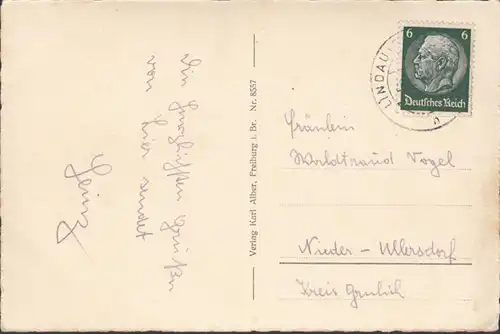 Die herzlichsten Grüße
von hier sendet
Heinz
Verlag Karl Alber, Freiburg i. Br. Nr. 8557
LINDAU
6 6
Deutsches Reich
Fräulein
Woldtraud Vogel
Nieder-Ullersdorf
Kreis Grulich